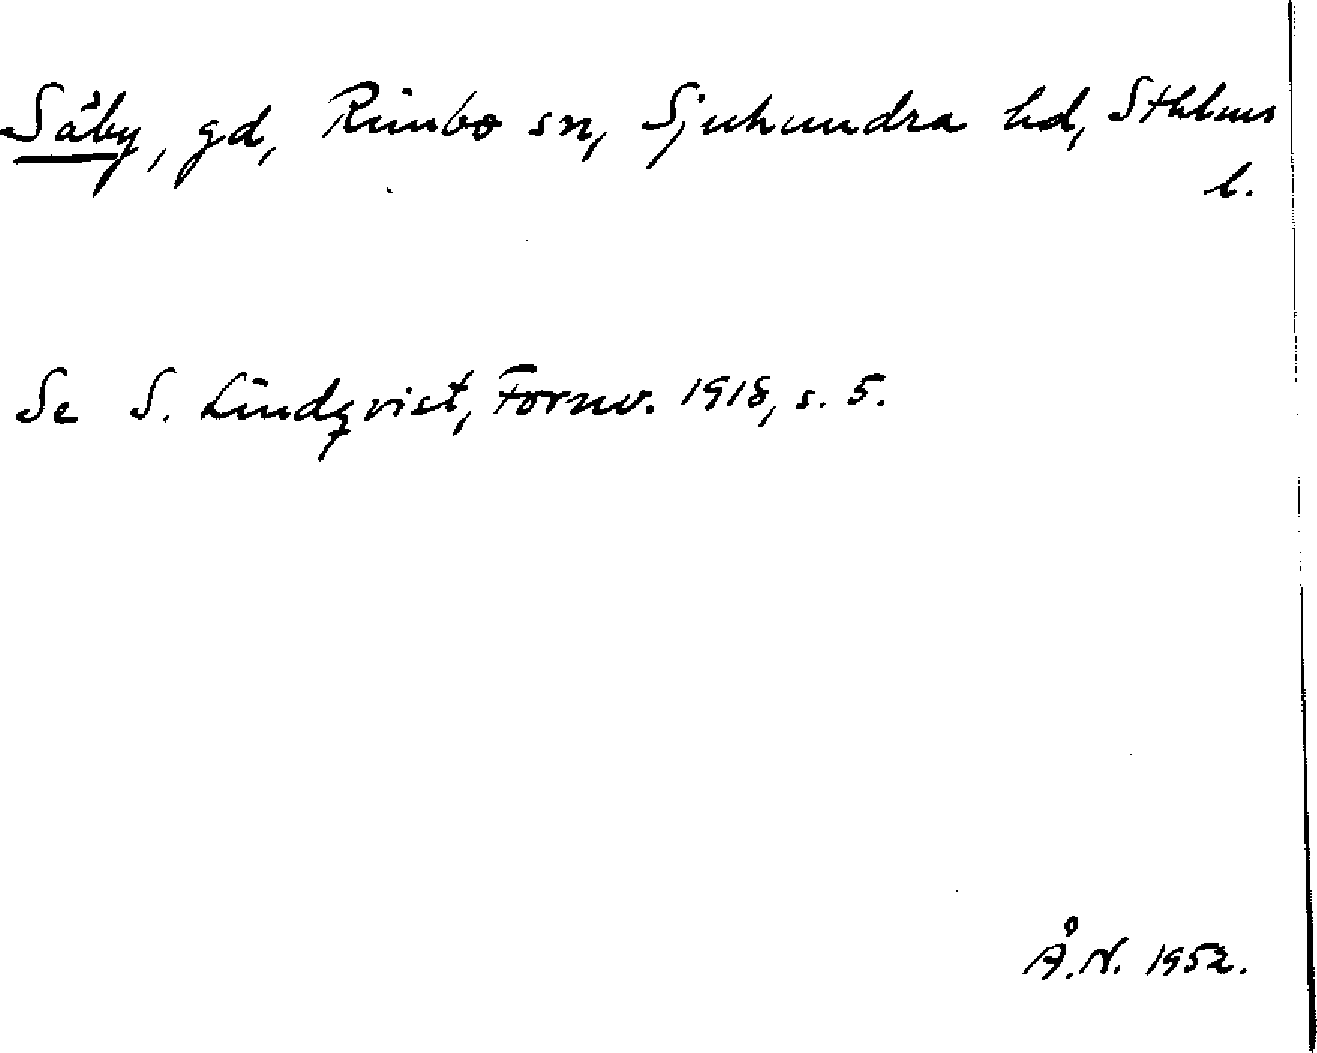 Såby, gd, Rimbo sn, Sjuhundra hd, Sthlms
l.
Se S. Lindqvist, Fornv. 1918, s. 5.
Å.N. 1952.